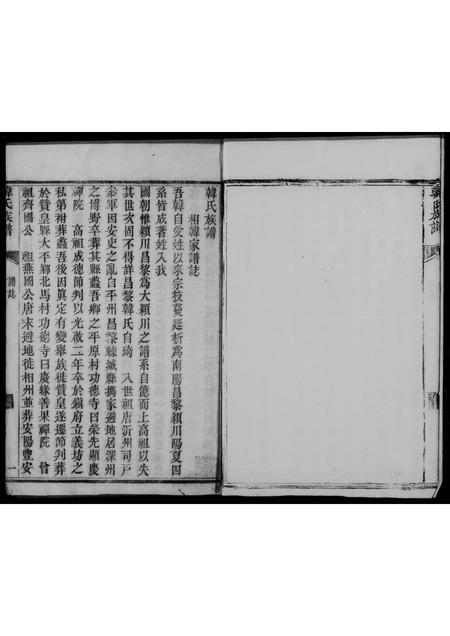 韓氏族譜
相韓家譜誌
吾韓自受姓以來宗枝蔓延析為南陽昌黎潁川陽夏四
系皆成著姓入我
國朝惟潁川昌黎為大潁川之譜系自億而上高祖以失
其世次固不得詳昌黎韓氏自琦 八世祖唐沂州司戶
參軍因安史之亂自平州昌黎棘城縣攜家避地居深州
之博野卒葬其縣蠡吾鄉之平原村功德寺曰榮先顯慶
禪院 高祖成德節判以光啟二年卒於鎮府立義坊之
私第祔葬蠡吾後因真定有變舉族徙贊皇遂遷節判葬
於贊皇縣太平鄉北馬村功德寺曰慶緣善果禪院 曾
祖齊國公 祖燕國公唐末避地徙相州並葬安陽豐安
韓氏族譜
譜誌
一
韓氏族譜